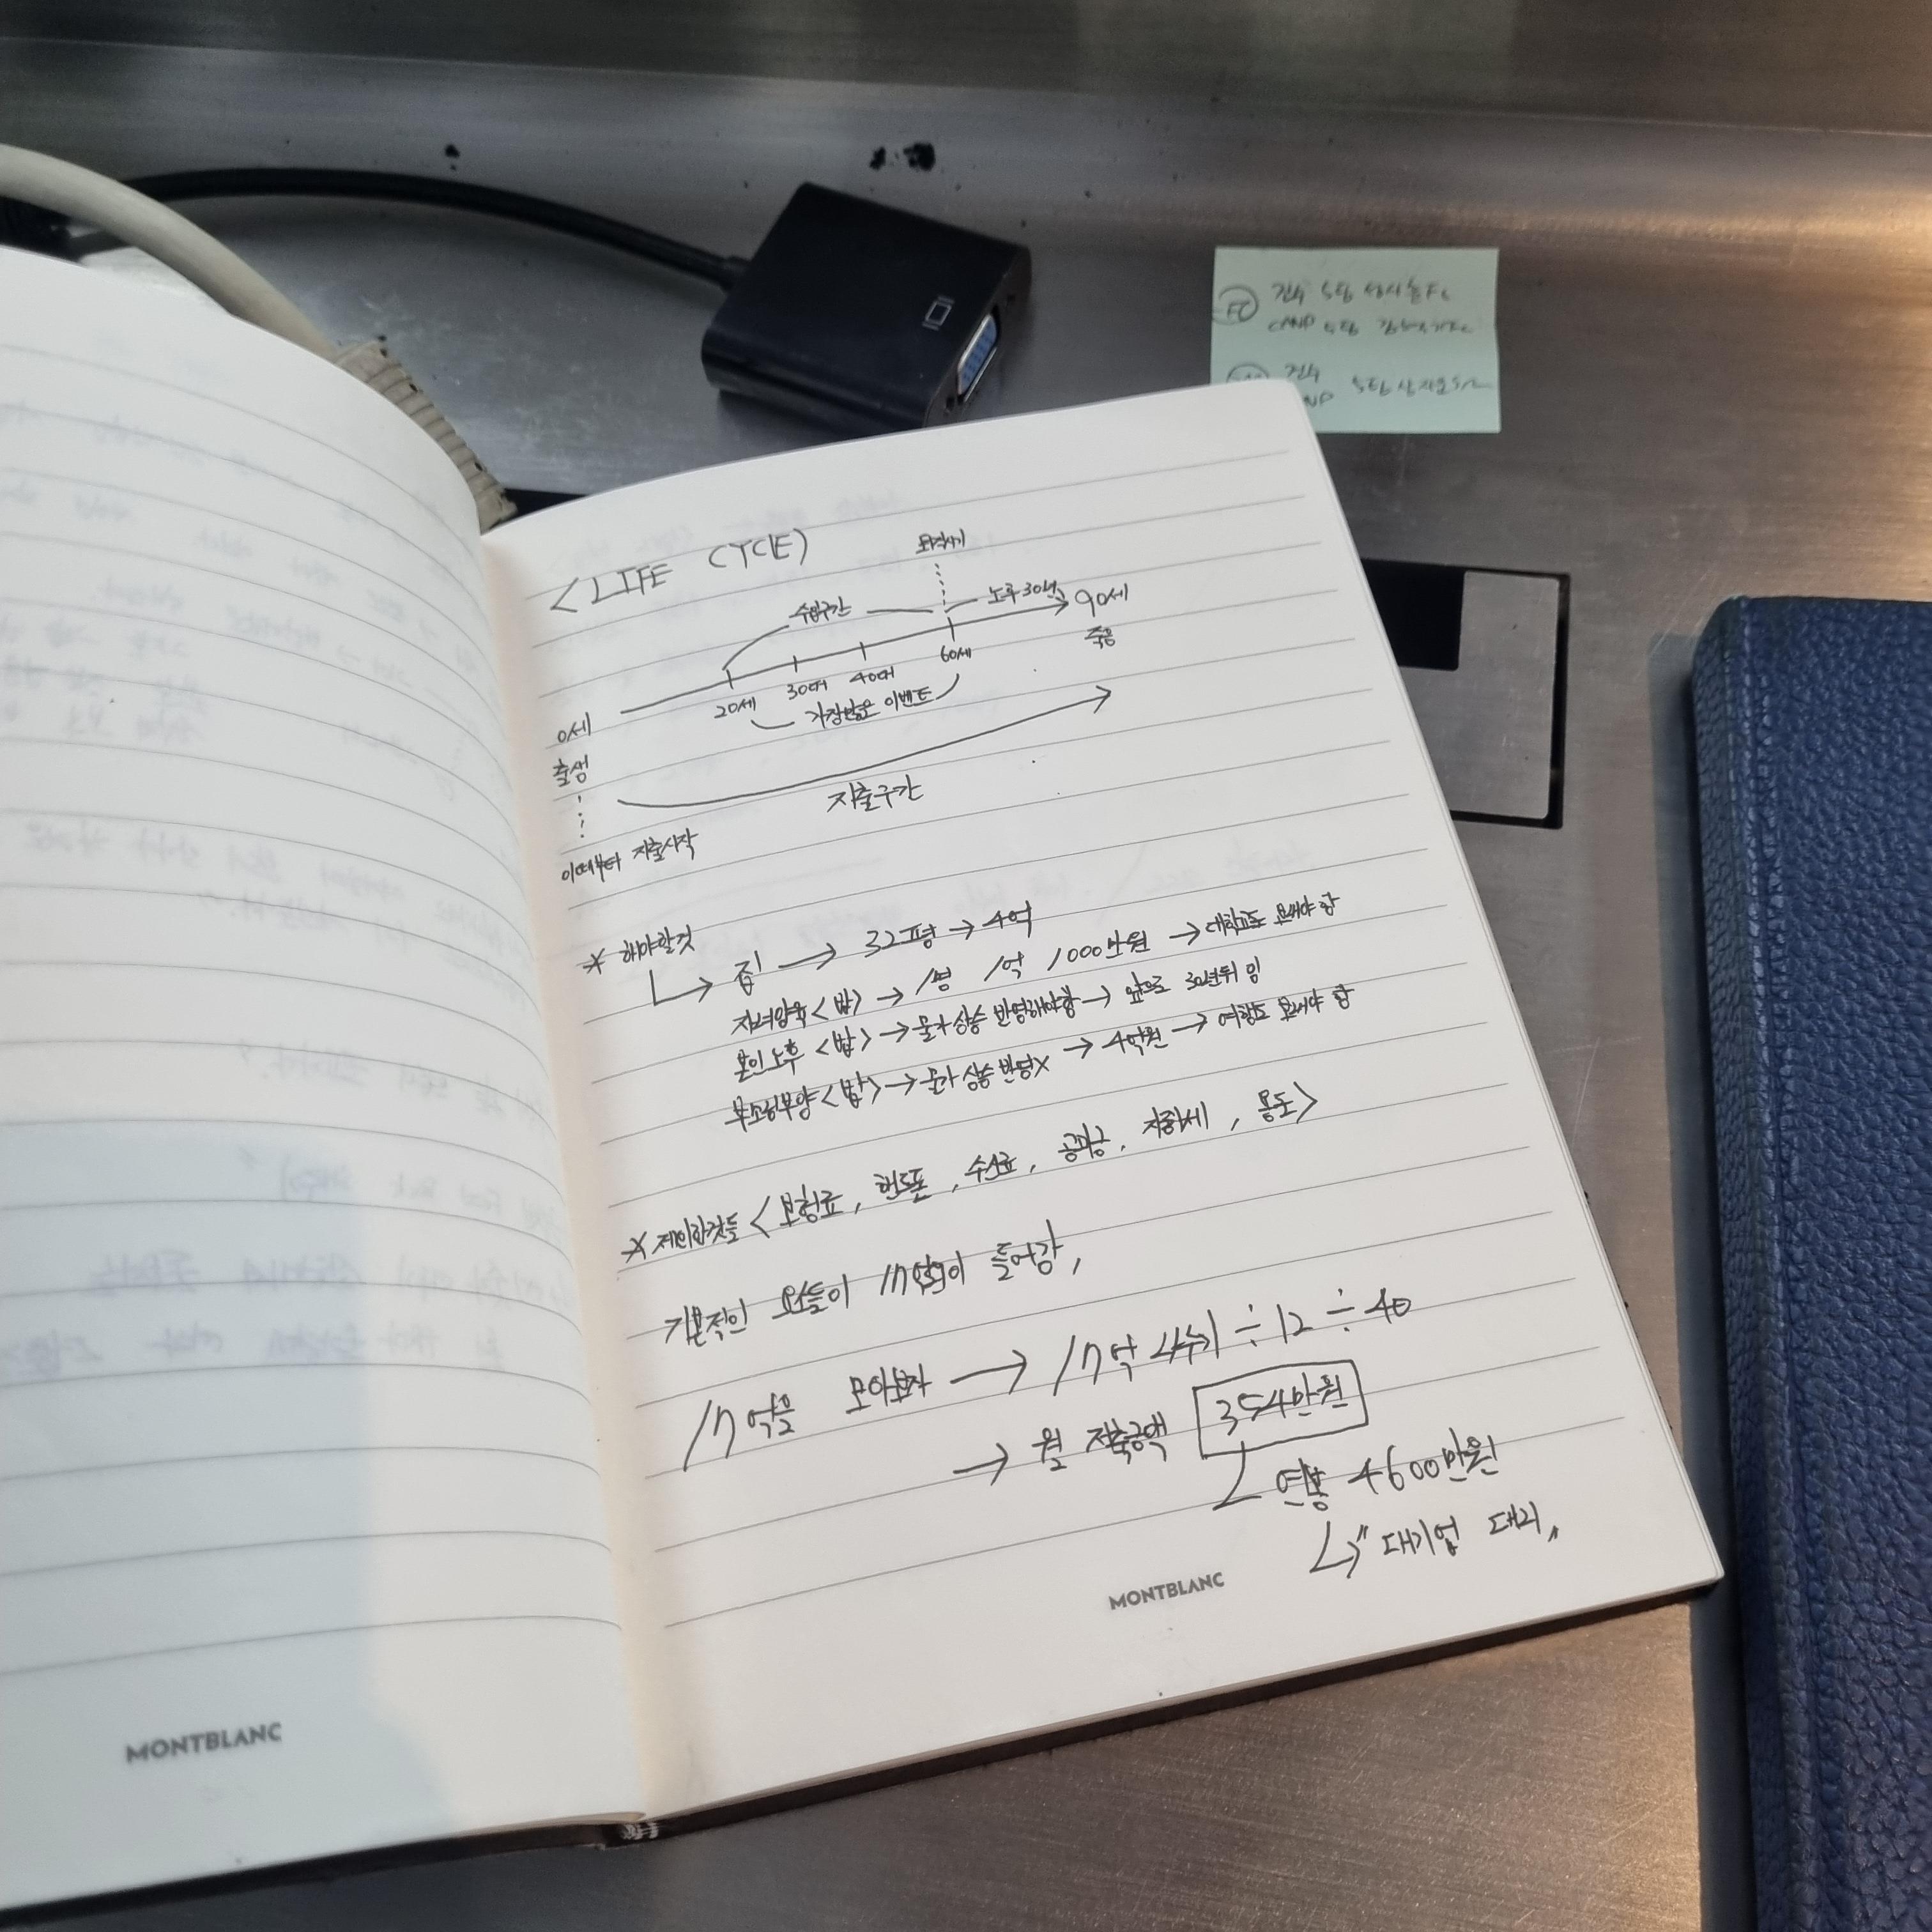 <LIFE CYCLE>
수입구간
노후 30년
90세
죽음
0세
20세
30대
40대
60세
가장많은 이벤트
출생
지출구간
이때부터 지출시작
* 해야할것
집 → 32평 → 4억
자녀양육<밥> → 1명 1억 1000만원 → 대학교도 보내야 함
본인노후 <밥> → 물가상승 반영해야함 → 앞으로 30년뒤 임
부모님부양<밥> → 물가상승 반영X → 4억원 → 여행도 보내야 함
* 제외한것들 <보험료, 핸드폰, 수선료, 공과금, 지하세, 용돈>
기본적인 요소들이 17억이 들어감,
17억을 모아보자 → 17억 나누기 ÷ 12 ÷ 40
→ 월 저축금액 354만원
연봉 4600만원
" 대기업 대리 "
MONTBLANC
MONTBLANC
FC